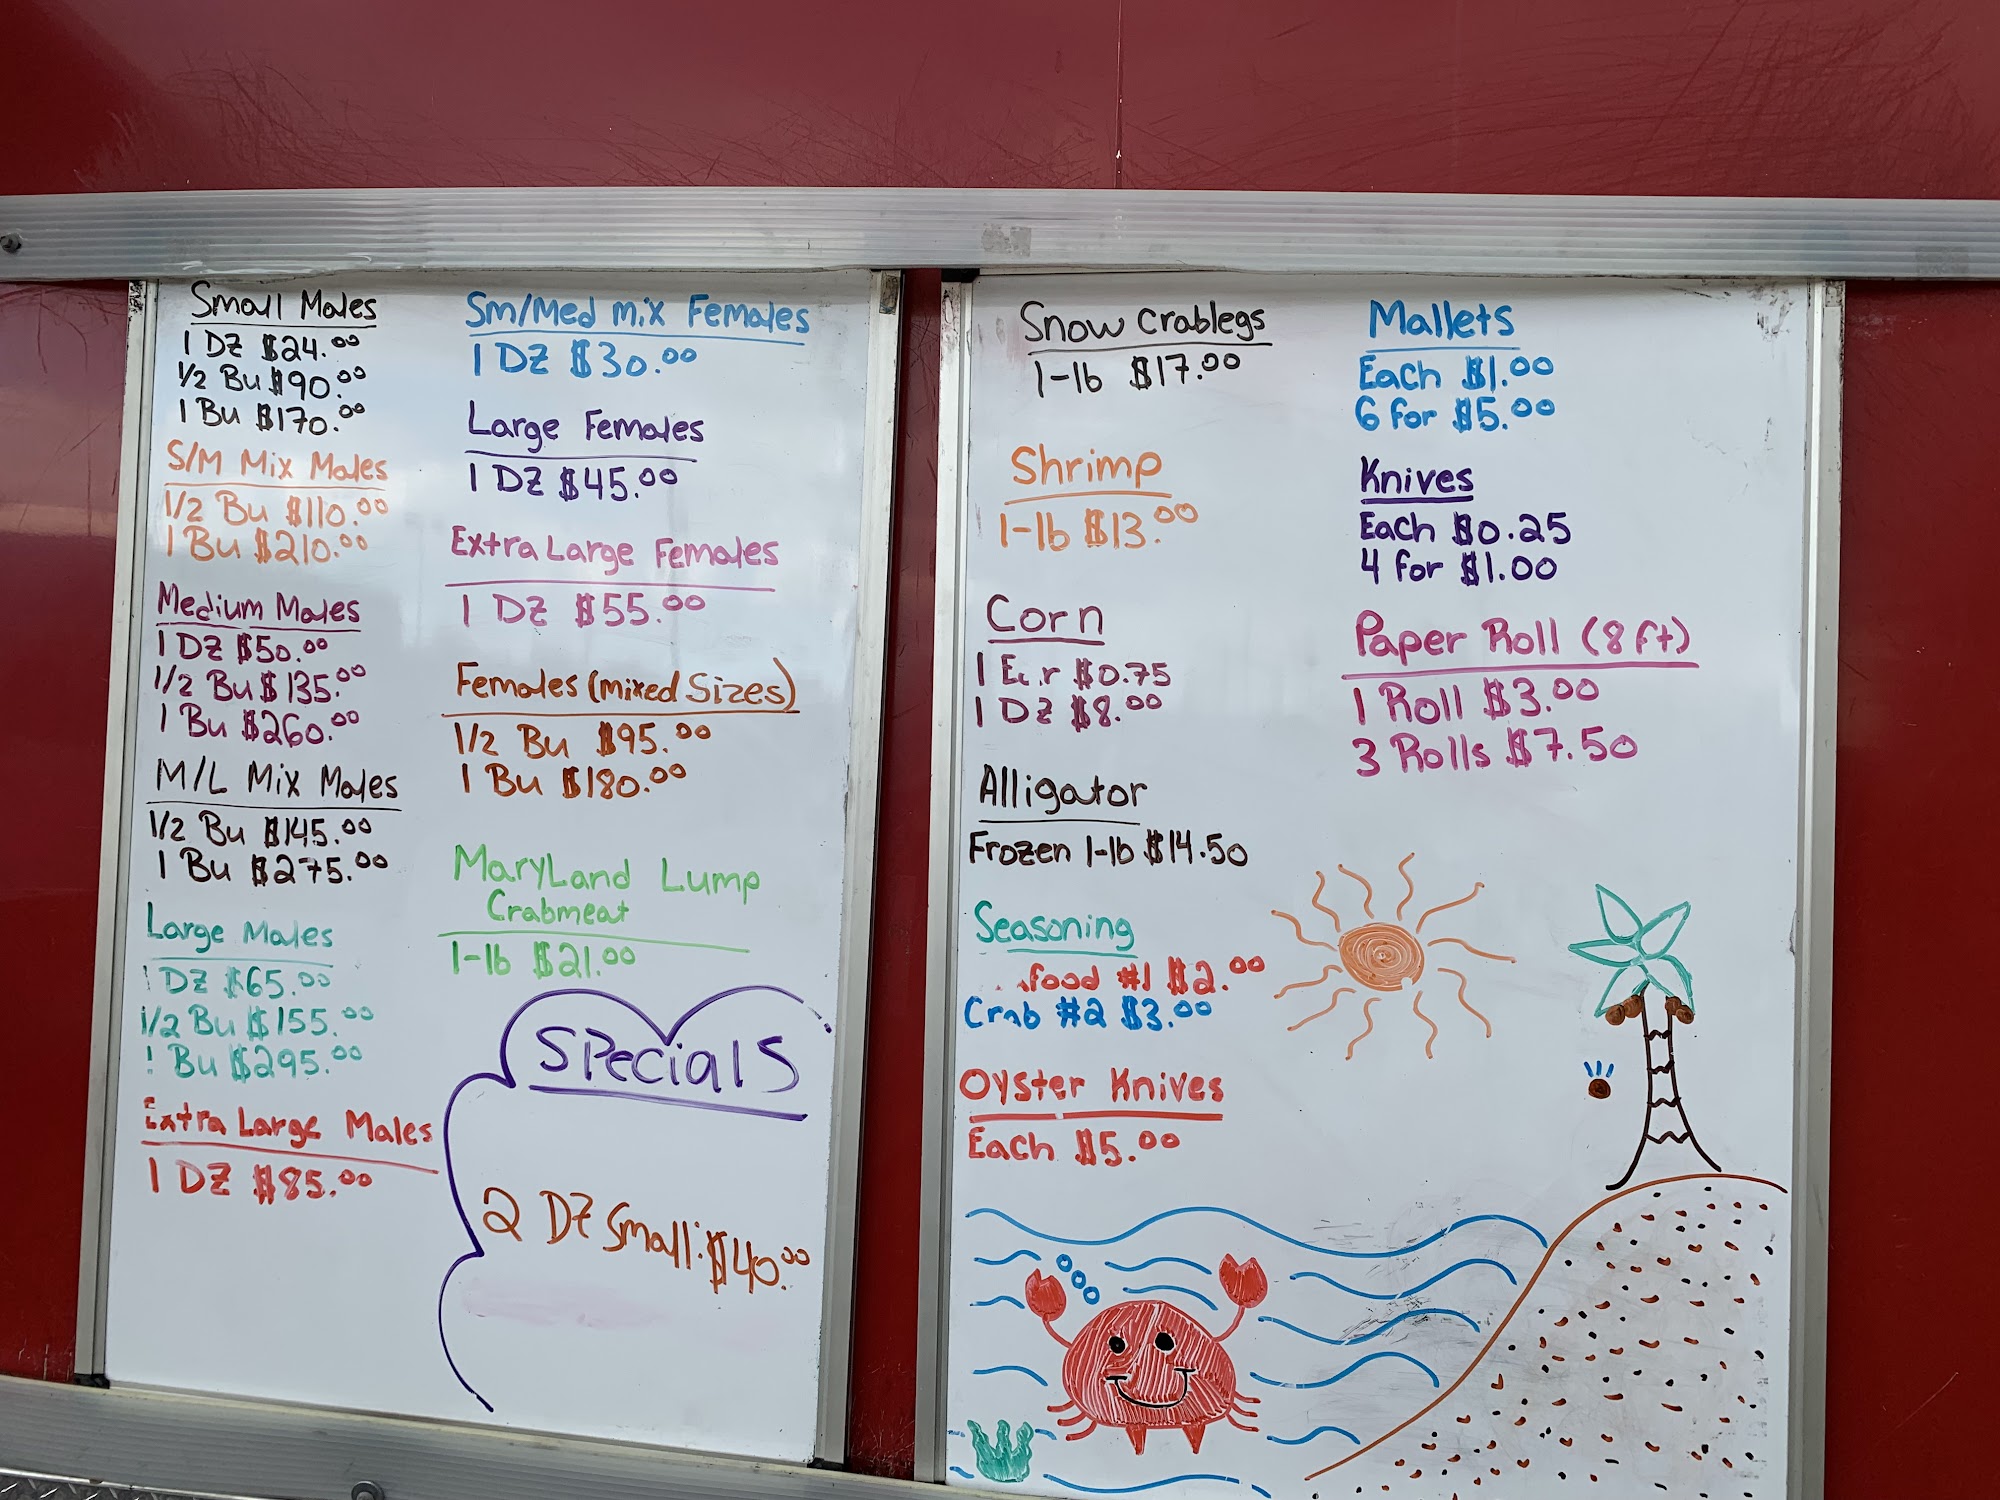 Small Males
1 DZ $24.00
1/2 Bu $90.00
1 Bu $170.00
S/M Mix Males
1/2 Bu $110.00
1 Bu $210.00
Medium Males
1 DZ $50.00
1/2 Bu $135.00
1 Bu $260.00
M/L Mix Males
1/2 Bu $145.00
1 Bu $275.00
Large Males
1 DZ $65.00
1/2 Bu $155.00
1 Bu $295.00
Extra Large Males
1 DZ $85.00
Sm/Med mix Females
1 DZ $30.00
Large Females
1 DZ $45.00
Extra Large Females
1 DZ $55.00
Females (mixed Sizes)
1/2 Bu $95.00
1 Bu $180.00
MaryLand Lump
Crabmeat
1-lb $21.00
Specials
2 DZ Small: $40.00
Snow Crablegs
1-lb $17.00
Shrimp
1-lb $13.00
Corn
1 Ear $0.75
1 DZ $8.00
Alligator
Frozen 1-lb $14.50
Seasoning
food #1 $2.00
Crab #2 $3.00
Oyster Knives
Each $5.00
Mallets
Each $1.00
6 for $5.00
Knives
Each $0.25
4 for $1.00
Paper Roll (8 ft)
1 Roll $3.00
3 Rolls $7.50